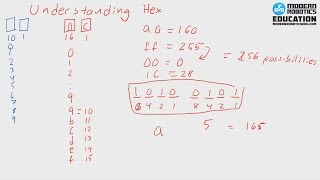 Understanding Hex
MODERN
ROBOTICS
EDUCATION
10 1
0
1
2
3
4
5
6
7
8
9
a c
16 1
0
1
2
9
a = 10
b 11
c 12
d 13
e 14
f 15
a0 = 160
ff = 255
00 = 0
= 256 possibilities
1C = 28
1 0 1 0 0 1 0 1
8 4 2 1 8 4 2 1
a 5 = 165